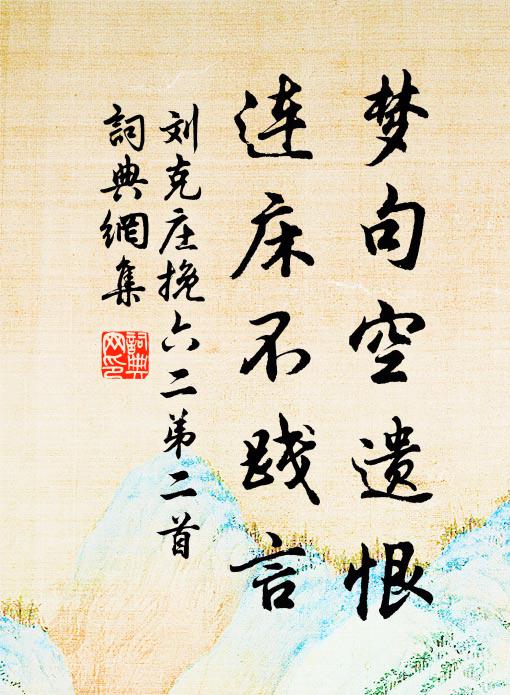 梦句空遗恨
连床不践言
刘克庄挽六二弟二首
詞典網集
詞典网印